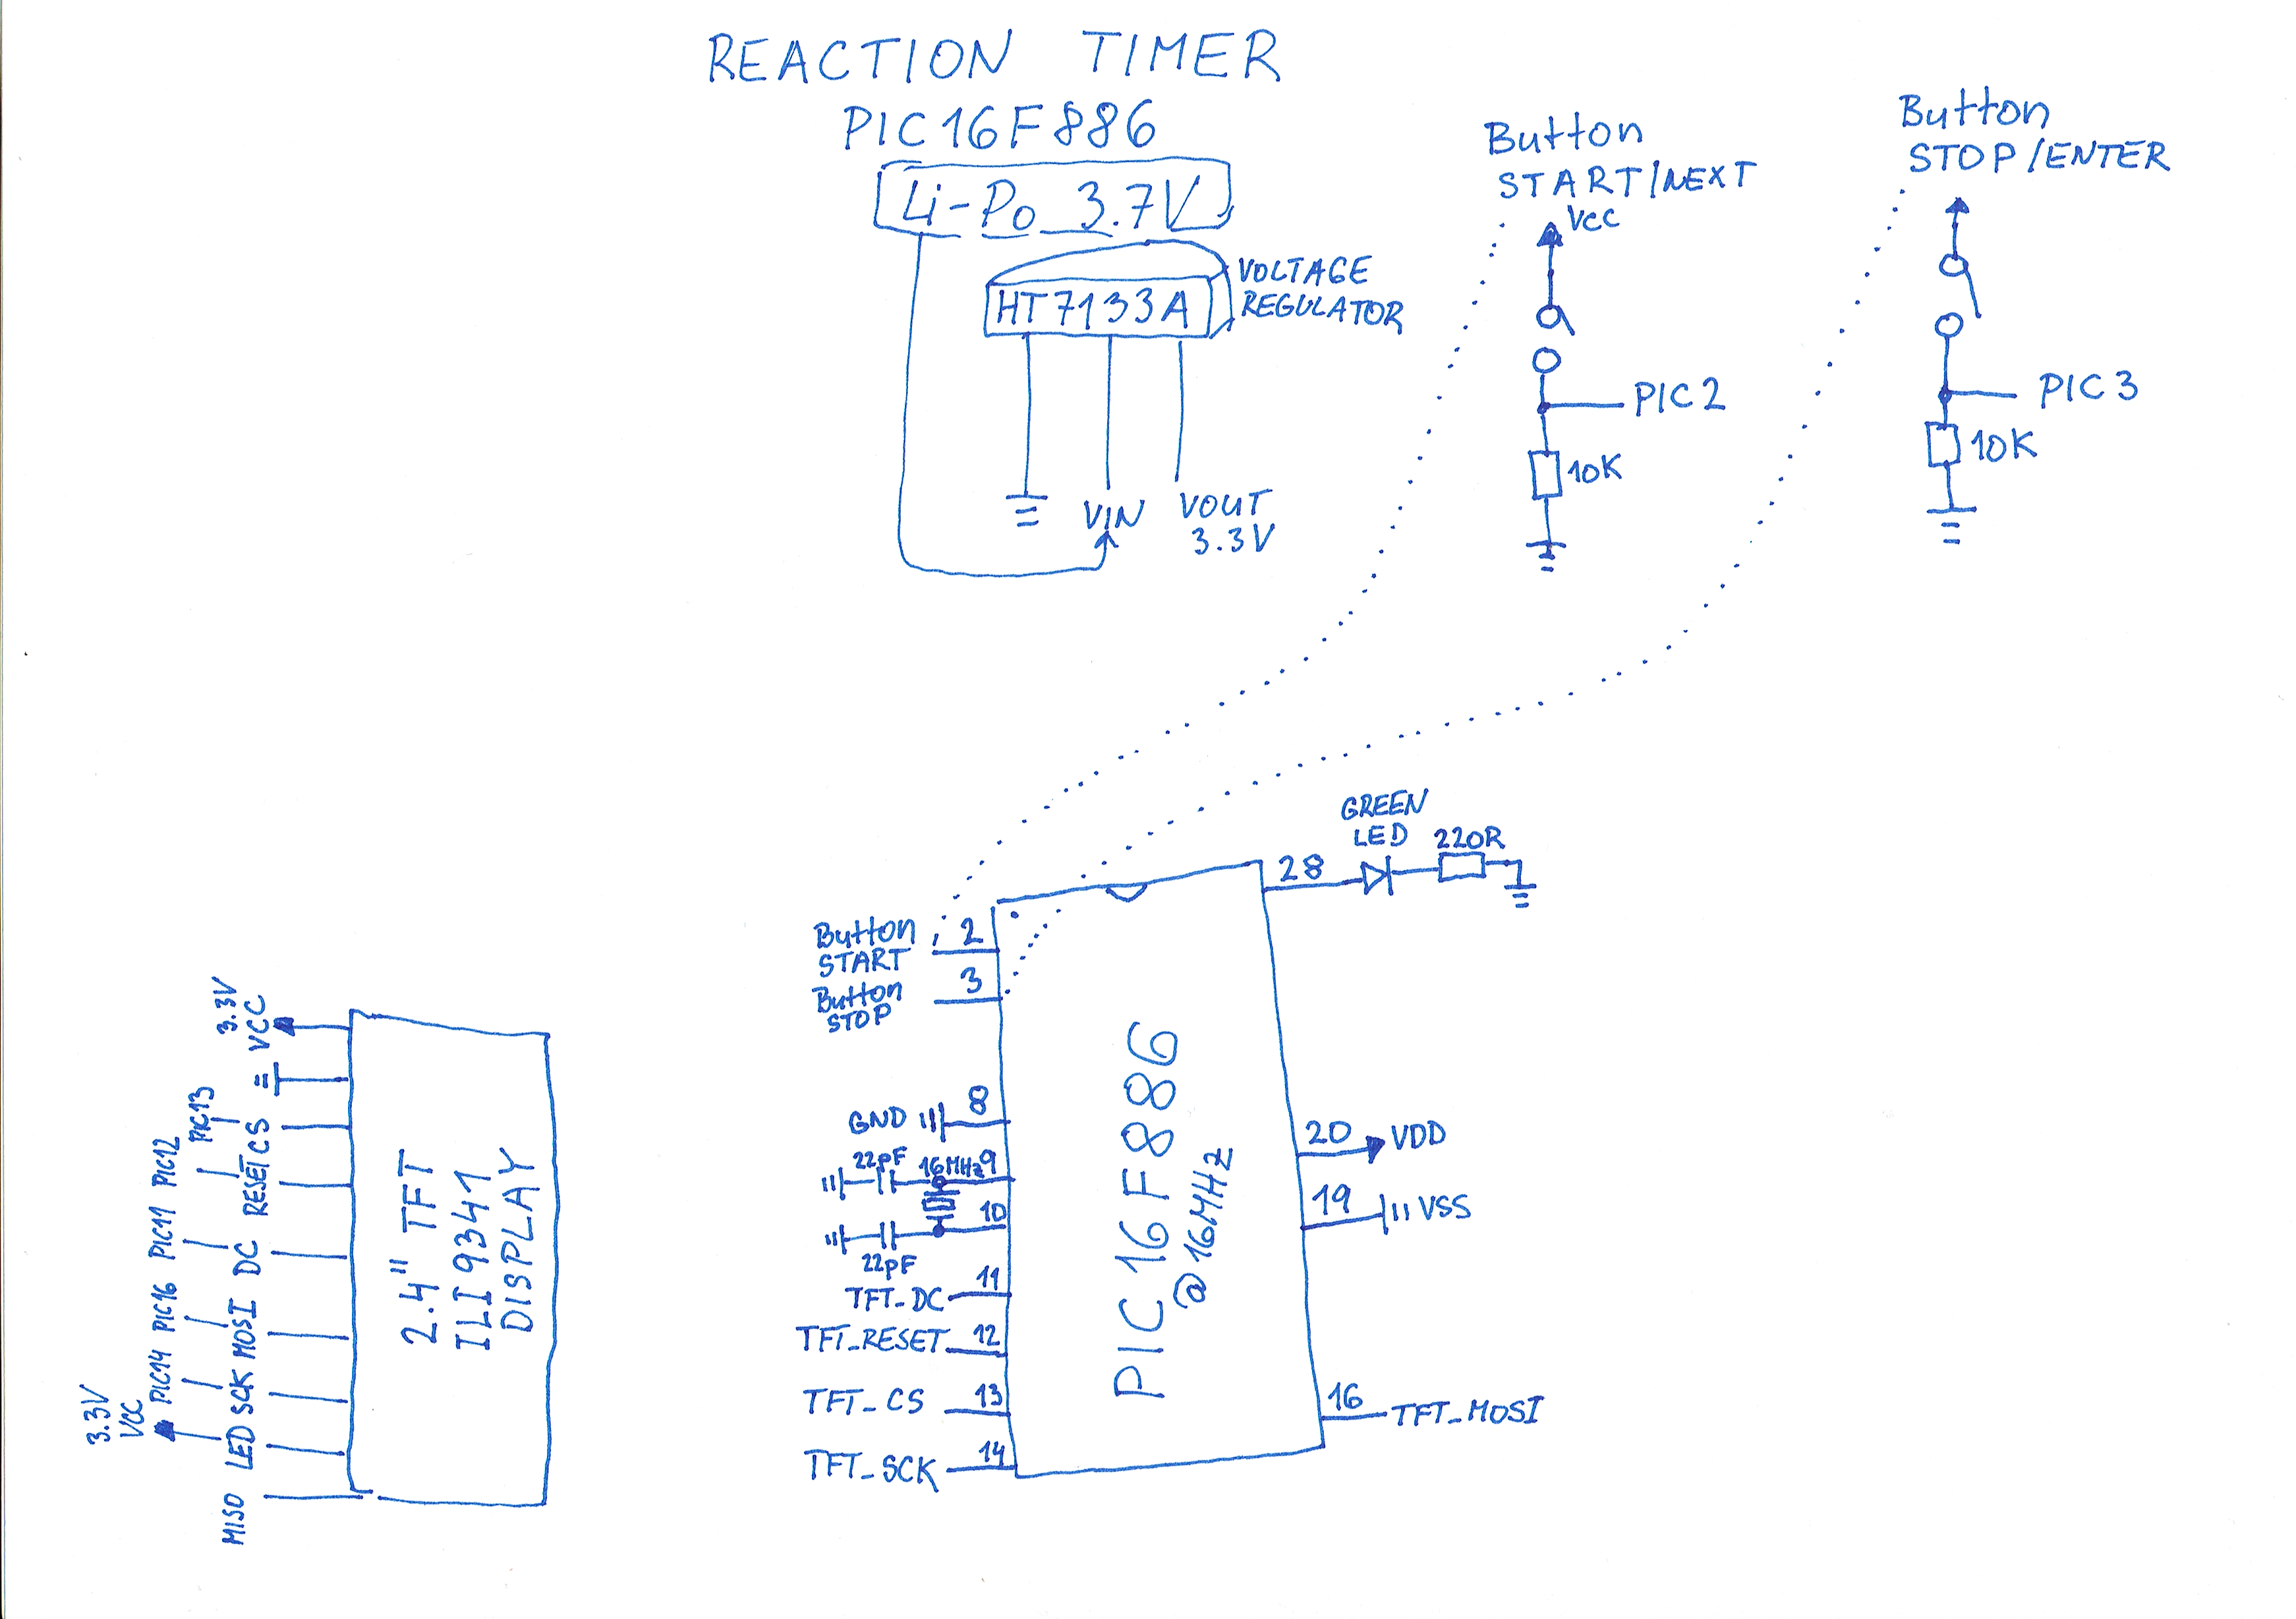 REACTION TIMER
PIC16F886
Li-Po 3.7V
HT7133A
VOLTAGE
REGULATOR
VIN
VOUT
3.3V
Button
START/NEXT
VCC
PIC2
10K
Button
STOP/ENTER
PIC3
10K
GREEN
LED
220R
28
Button
START
2
Button
STOP
3
GND
8
22pF
16MHz
9
10
22pF
TFT_DC
11
TFT_RESET
12
TFT_CS
13
TFT_SCK
14
PIC16F886
@16MHz
20
VDD
19
VSS
16
TFT_MOSI
3.3V
VCC
PIC13
CS
PIC12
RESET
PIC11
DC
PIC16
MOSI
PIC14
SCK
3.3V
VCC
LED
MISO
2.4" TFT
ILI9341
DISPLAY